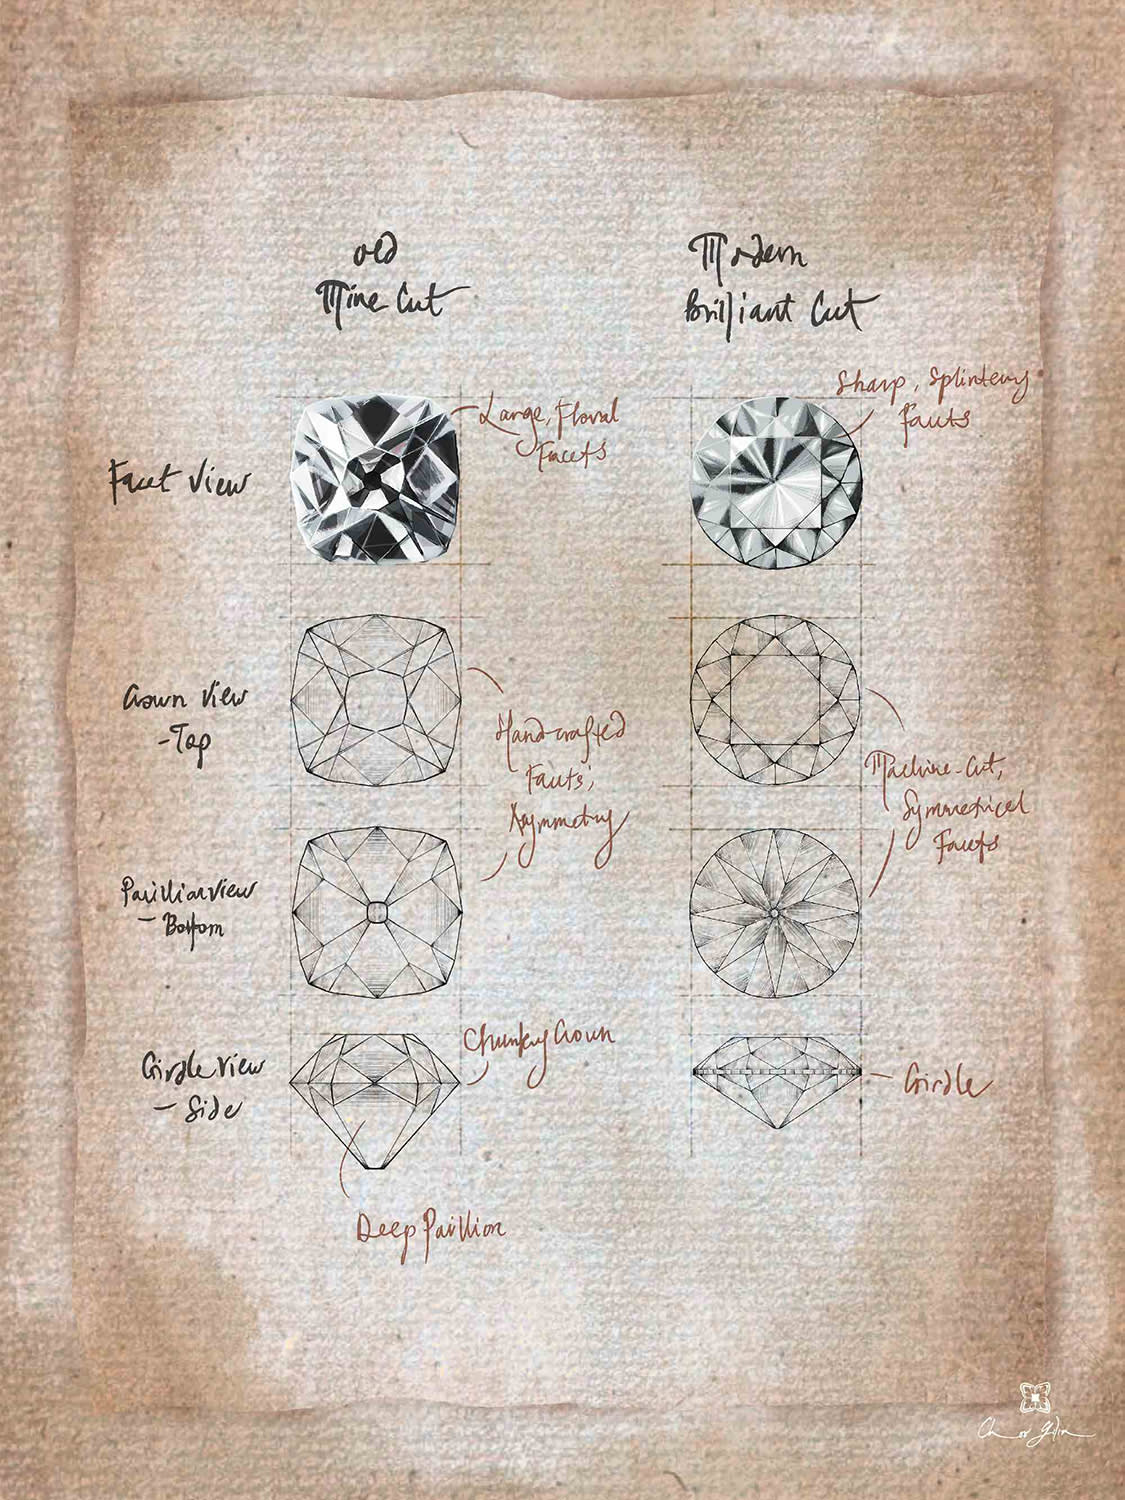 Old
Mine Cut
Modern
Brilliant Cut
Facet View
Large, Floral
Facets
Sharp, Splintery
Facets
Crown View
-Top
Hand-crafted
Facets,
Asymmetry
Machine-Cut,
Symmetrical
Facets
Pavillion View
- Bottom
Girdle View
- Side
Chunky Crown
Girdle
Deep Pavillion